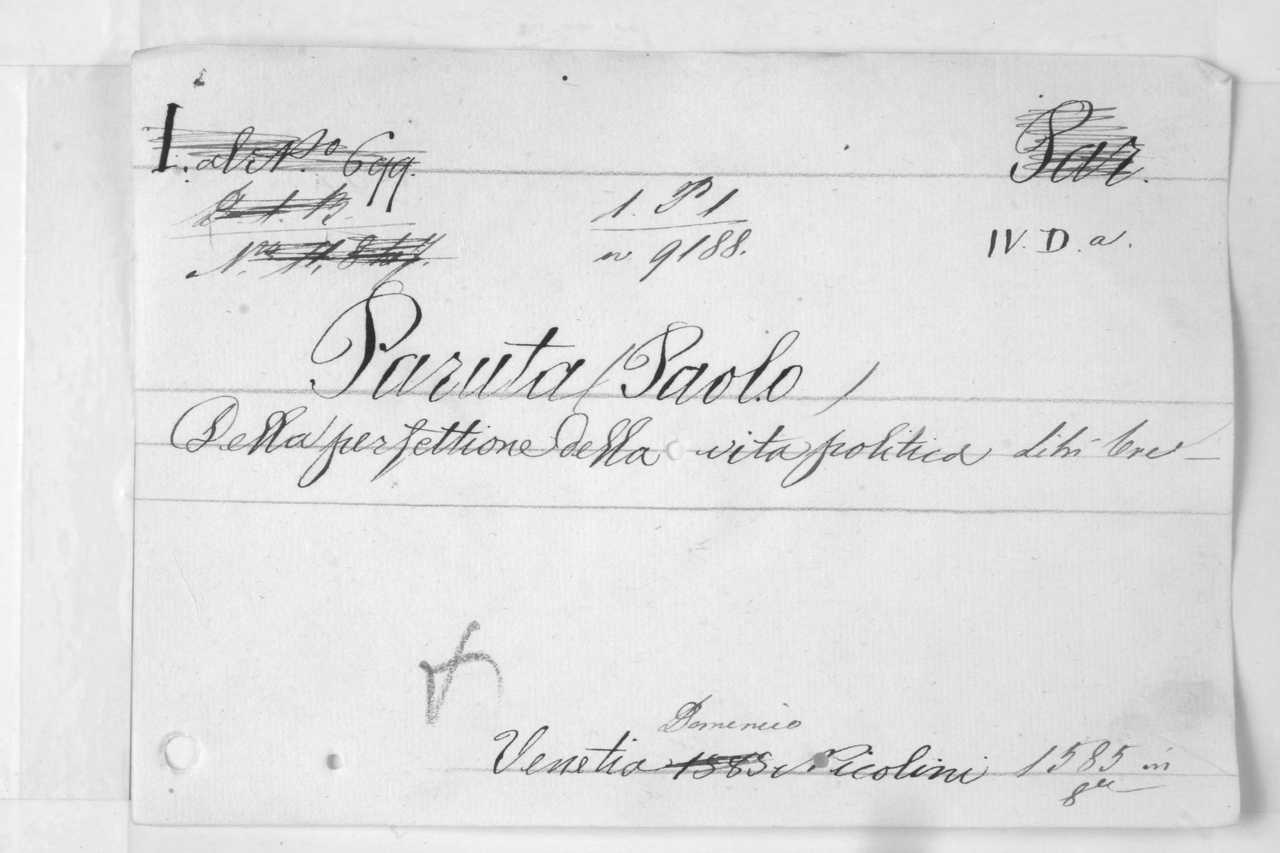 I. alr No 699. Par.
1. P1 IV. D. a.
n 9188.
Paruta (Paolo)
Della perfettione della vita politica libri tre
Domenico
Venetia 1585 Nicolini 1585 in
8vo